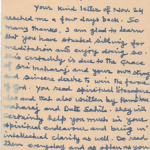 Your kind letter of Nov. 24
reached me a four days back. So
many thanks. I am glad to learn
that you have started sitting for
meditation and enjoy doing so.
It is certainly is due to the Grace
of primary and your own strong
and sincere desire to seek for peace
and. You read spiritual literature
and that also written by
and Data Sahib, they will
certainly help you much in your
spiritual endeavour and bring in
intellectual clarity as well. Do read
them everyday and as often as you